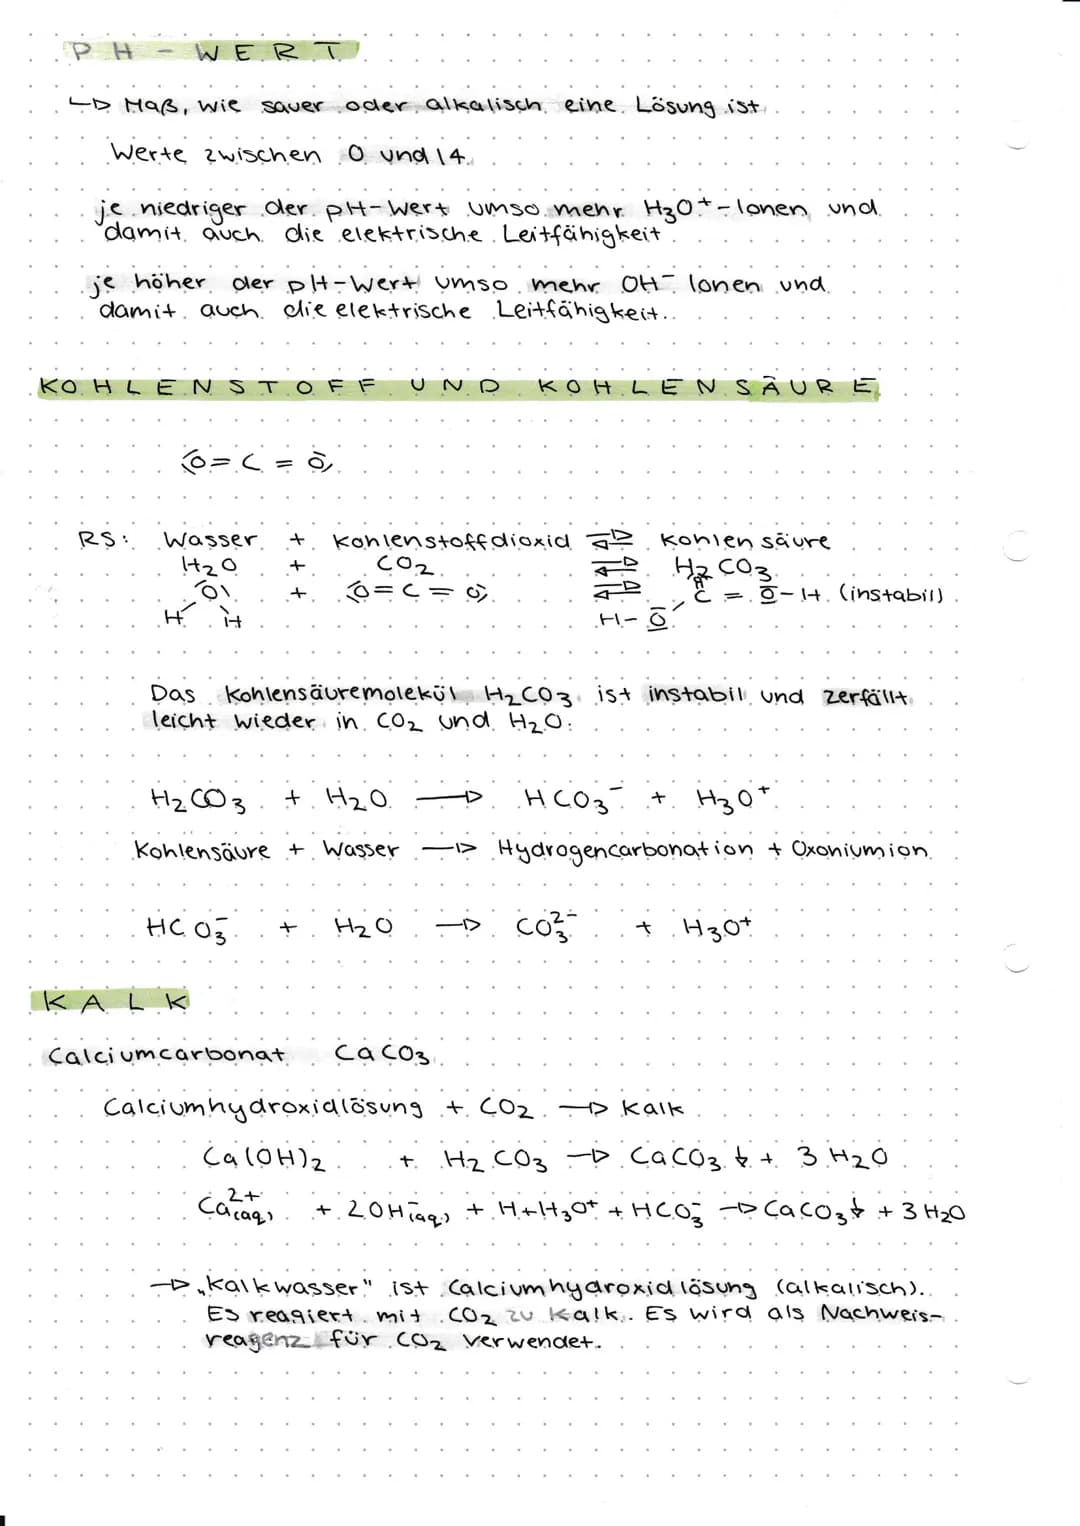 PH-WERT
↳ Maß, wie sauer oder alkalisch eine Lösung ist
Werte zwischen 0 und 14.
je niedriger der pH-Wert umso mehr H₃O⁺-Ionen und
damit auch die elektrische Leitfähigkeit
je höher der pH-Wert umso mehr OH⁻ Ionen und
damit auch die elektrische Leitfähigkeit.
KOHLENSTOFF UND KOHLENSÄURE
O=C=O
RS: Wasser + Kohlenstoffdioxid ⇌ Kohlensäure
H₂O + CO₂ ⇌ H₂CO₃
O + O=C=O ⇌ C=O-H (instabil)
H H H-O
Das Kohlensäuremolekül H₂CO₃ ist instabil und zerfällt
leicht wieder in CO₂ und H₂O.
H₂CO₃ + H₂O → HCO₃⁻ + H₃O⁺
Kohlensäure + Wasser → Hydrogencarbonation + Oxoniumion
HCO₃⁻ + H₂O → CO₃²⁻ + H₃O⁺
KALK
Calciumcarbonat CaCO₃
Calciumhydroxidlösung + CO₂ → Kalk
Ca(OH)₂ + H₂CO₃ → CaCO₃↓ + 3 H₂O
Ca²⁺(aq) + 2OH⁻(aq) + H+H₃O⁺ + HCO₃⁻ → CaCO₃↓ + 3 H₂O
→ „Kalkwasser" ist Calciumhydroxidlösung (alkalisch).
Es reagiert mit CO₂ zu Kalk. Es wird als Nachweis-
reagenz für CO₂ verwendet.